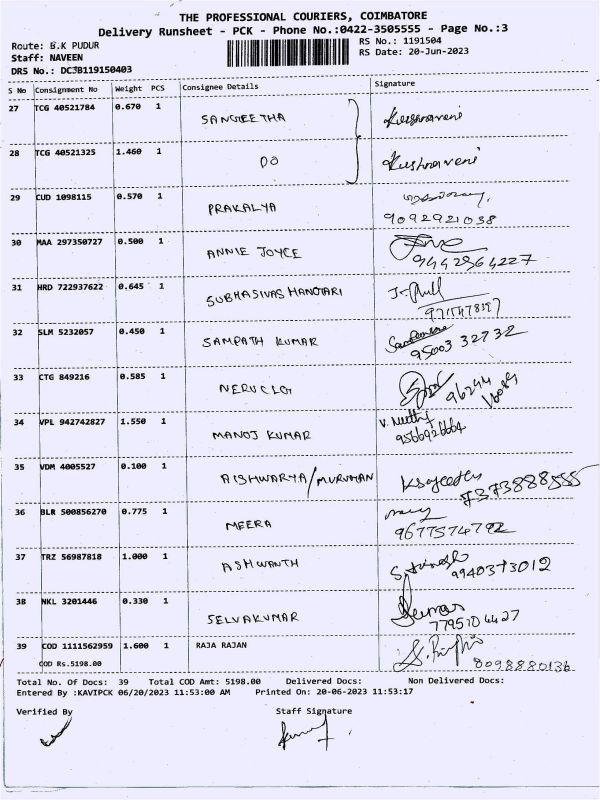 THE PROFESSIONAL COURIERS, COIMBATORE
Delivery Runsheet - PCK - Phone No.:0422-3505555 - Page No.:3
Route: B.K PUDUR
RS No.: 1191504
Staff: NAVEEN
RS Date: 20-Jun-2023
DRS No.: DC3B119150403
S No Consignment No Weight PCS Consignee Details Signature
27 TCG 40521784 0.670 1 SANGEETHA Kushraveni
28 TCG 40521325 1.460 1 DO Kushraveni
29 CUD 1098115 0.570 1 PRAKALYA
9092921038
30 MAA 297350727 0.500 1 ANNIE JOYCE
9442964227
31 HRD 722937622 0.645 1
32 SLM 5232057 0.450 1 SAMPATH KUMAR
95003 32732
33 CTG 849216 0.585 1
34 VPL 942742827 1.550 1 MANOJ KUMAR
9566926664
35 VDM 4005527 0.100 1 AISHWARYA/MURUHAN
7373888555
36 BLR 500856270 0.775 1 MEERA
9677574792
37 TRZ 56987818 1.000 1 ASHWANTH
9940373012
38 NKL 3201446 0.330 1 SELVAKUMAR Kumar
7795104427
39 COD 1111562959 1.600 1 RAJA RAJAN
COD Rs.5198.00
8098880136
Total No. Of Docs: 39 Total COD Amt: 5198.00 Delivered Docs: Non Delivered Docs:
Entered By :KAVIPCK 06/20/2023 11:53:00 AM Printed On: 20-06-2023 11:53:17
Verified By Staff Signature